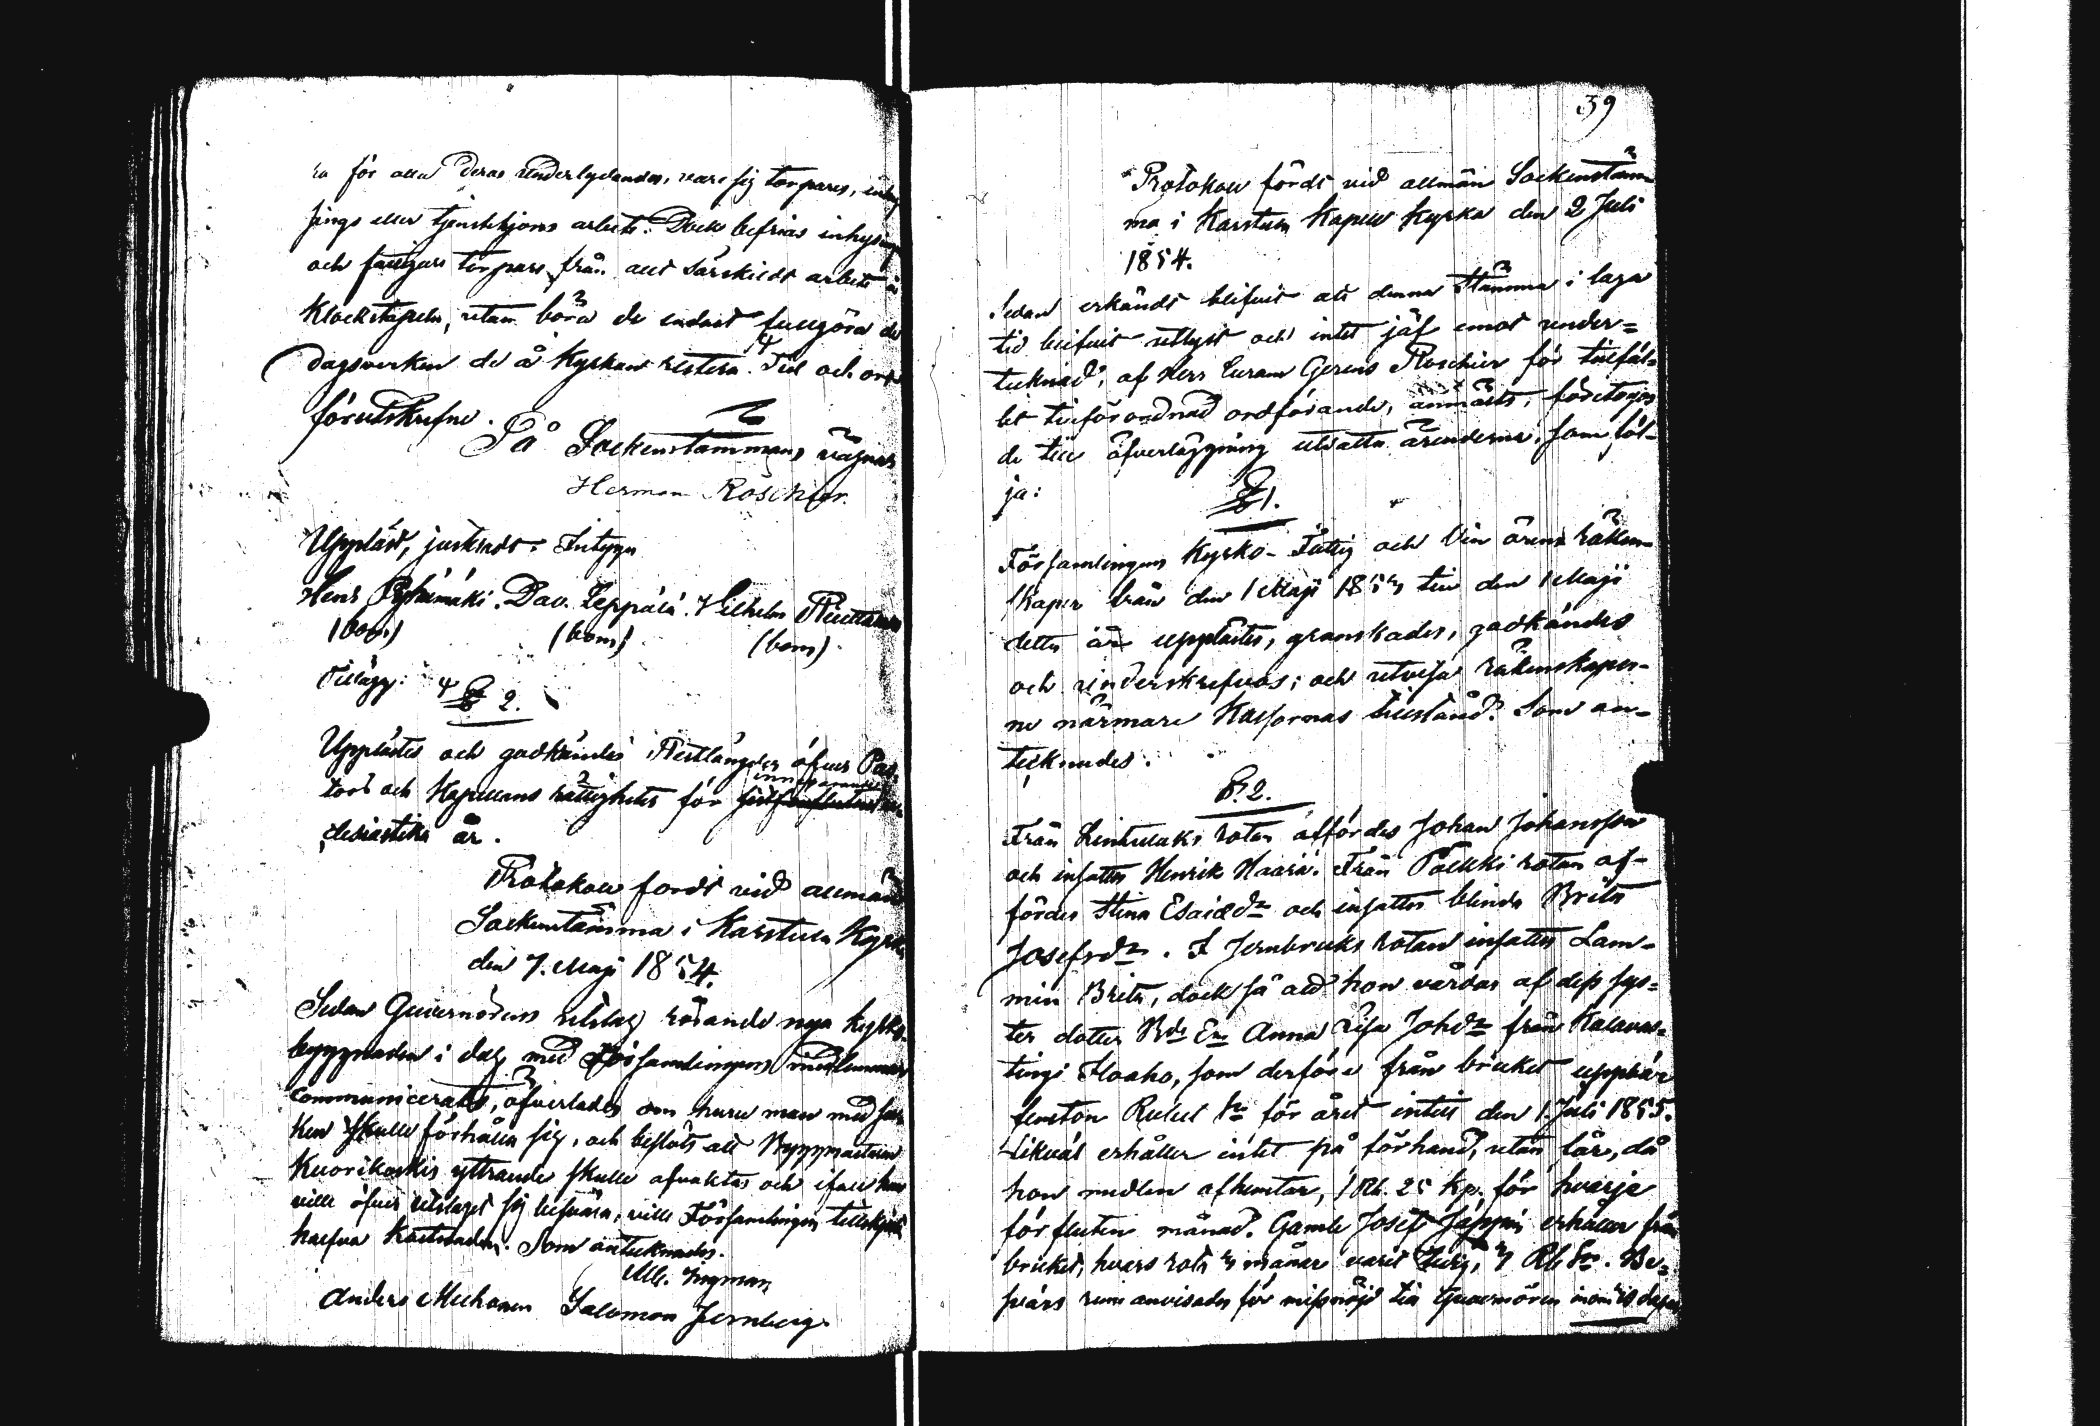 ra för alla deras underlydandes, vare sig torpares, inhy
sings eller tjenstehjons arbete. Dock befrias inhysingar
och fattigare torpare från allt särskildt arbete å
Klockstapeln, utan böra de endast fullgöra de
dagsverken de å Kyrkan restera. Tid och ort
förutskrefne.
På Sockenstämmans vägnar
Herman Roschier.
Uppläst, justeradt: Intyga
Henr. Pyhämäki. Dav. Leppälä. Wilhelm Ruuttanen
(bom.) (bom.) (bom.)
Tillägg: § 2.
Upplästes och godkändes Restlängder öfver Pas-
tors och Kapellans rättigheter för innevarande
clesiastika år.
Protokoll fördt vid allmän
Sockenstämma i Karstula Kyrka
den 7. Maji 1854.
Sedan Guvernörens utslag rörande nya kyrko-
byggnaden i dag med Församlingens medlemmar
communicerats, öfverlades om huru man med sa-
ken skulle förhålla sig, och beslöts att Byggmästaren
Kuorikoskis yttrande skulle afvaktas och ifall han
ville öfver utslaget sig besvära, ville Församlingen tillskjuta
halfva kostnaden. Som antecknades.
Ingman
Anders Muhonen Salomon Jernberg
39
Protokoll fördt vid allmän Sockenstäm-
ma i Karstula Kapell Kyrka den 2 Juli
1854.
Sedan erkändt blifvit att denna Stämma i laga
tid blifvit utlyst och intet jäf emot under=
tecknad, af Herr Curam Gerens Roschier för tillfäl-
let tillförordnad ordförande, anmälts, företogos
de till öfverläggning utsatta ärenderna, som föl-
ja:
§ 1.
Församlingens Kyrko- Fattig och Vin årens räken-
skaper från den 1 Maji 1853 till den 1 Maji
detta år upplästes, granskades, godkändes
och underskrefvos; och utvisa räkenskaper-
ne närmare Kassornas tillstånd. Som an-
tecknades.
§. 2.
Från Lintulaks rotan affördes Johan Johansson
och insattes Henrik Haarä. Från Pölkki rotan af-
fördes Stina Esaiædr och insattes blinda Brita
Josefsdr. I Jernbruks rotan insattes Lam-
min Brita, dock så att hon vårdas af dess sys=
ter dotter Anna Lisa Johdr från Kalavas=
tings Iloaho, som derföre från bruket uppbär
femton Rubel Sr för året intill den 1. Juli 1855.
Likväl erhåller intet på förhand, utan lär, då
hon medlen afhemtar, 1 Rb. 25 Kp. för hvarje
förfluten månad. Gamle Josef Jäppin erhåller från
bruket, hvars rote 3 månar varit ledig, 3 Rb Sr. Be=
svärs rum anvisades för missnöjd till Guvernören inom dagar